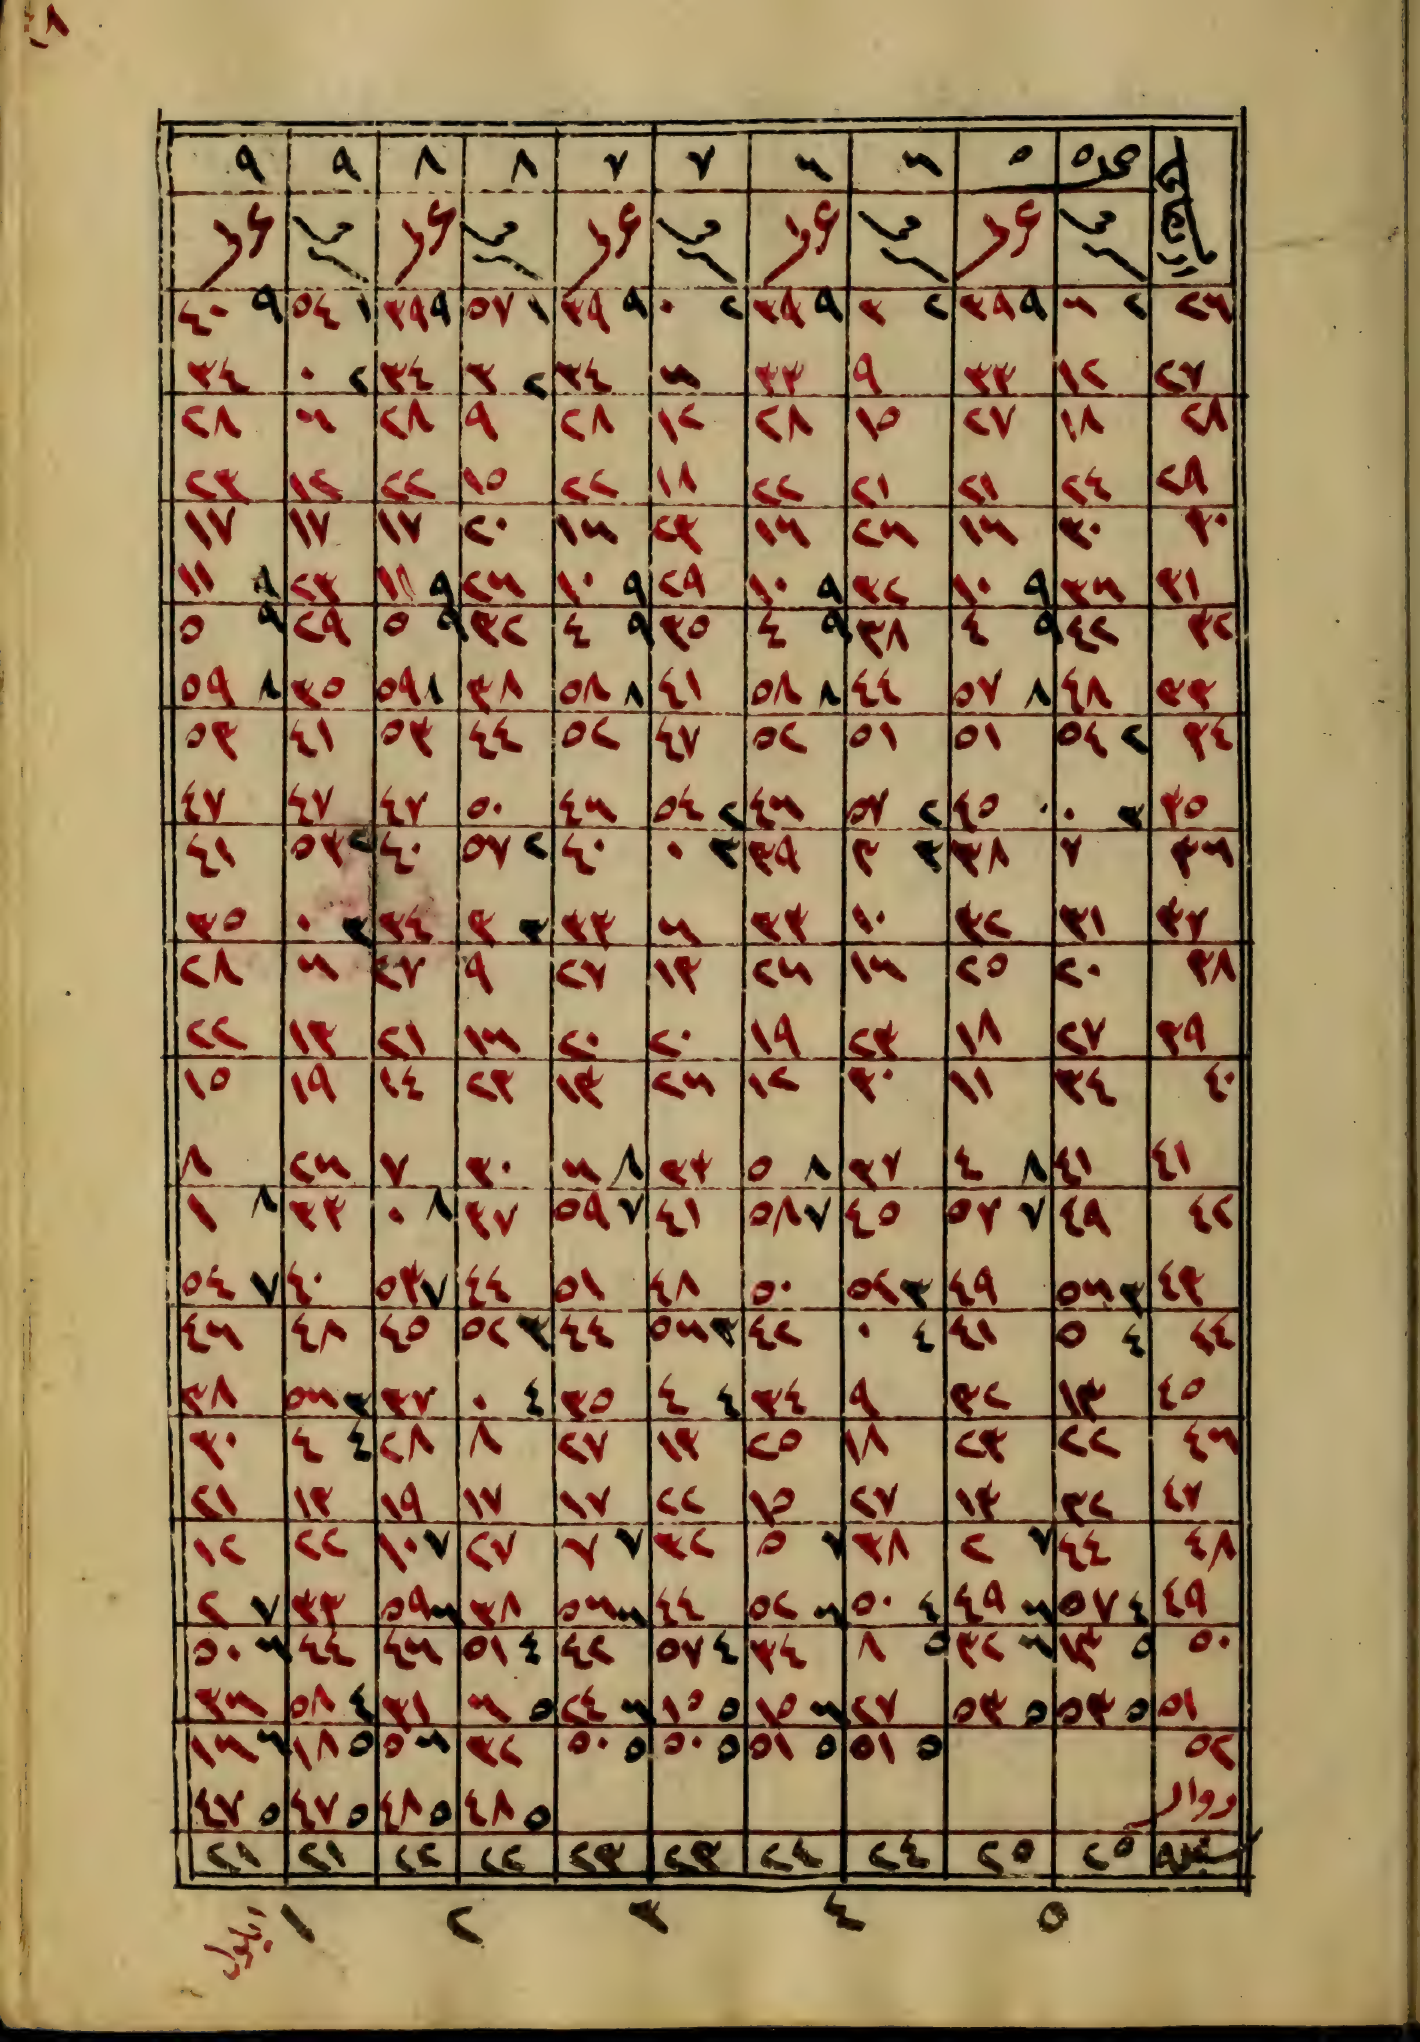 ٥ ٥ ٦ ٦ ٧ ٧ ٨ ٨ ٩ ٩
٢٦ ٢ ٦ ٩ ٣٩ ٢ ٣ ٩ ٣٩ ٢ ٠ ٩ ٣٩ ١ ٥٧ ٩ ٣٩ ١ ٥٤ ٩ ٤٠
٢٧ ١٢ ٣٣ ٩ ٣٣ ٦ ٣٤ ٢ ٣ ٣٤ ٢ ٠ ٣٤
٢٨ ١٨ ٢٧ ١٥ ٢٨ ١٢ ٢٨ ٩ ٢٨ ٦ ٢٨
٢٩ ٢٤ ٢١ ٢١ ٢٢ ١٨ ٢٢ ١٥ ٢٢ ١٢ ٢٣
٣٠ ٣٠ ١٦ ٢٦ ١٦ ٢٣ ١٦ ٢٠ ١٧ ١٧ ١٧
٣١ ٣٦ ٩ ١٠ ٣٢ ٩ ١٠ ٢٩ ٩ ١٠ ٢٦ ٩ ١١ ٢٣ ٩ ١١
٣٢ ٤٢ ٩ ٤ ٣٨ ٩ ٤ ٣٥ ٩ ٤ ٣٢ ٩ ٥ ٢٩ ٩ ٥
٣٣ ٤٨ ٨ ٥٧ ٤٤ ٨ ٥٨ ٤١ ٨ ٥٨ ٣٨ ٨ ٥٩ ٣٥ ٨ ٥٩
٣٤ ٢ ٥٤ ٥١ ٥١ ٥٢ ٤٧ ٥٢ ٤٤ ٥٣ ٤١ ٥٣
٣٥ ٣ ٠ ٤٥ ٢ ٥٧ ٤٦ ٢ ٥٤ ٤٦ ٥٠ ٤٧ ٤٧ ٤٧
٣٦ ٧ ٣٨ ٣ ٣ ٣٩ ٣ ٠ ٤٠ ٢ ٥٧ ٤٠ ٢ ٥٣ ٤١
٣٧ ٣١ ٣٢ ١٠ ٣٣ ٦ ٣٣ ٣ ٣ ٣٤ ٣ ٠ ٣٥
٣٨ ٢٠ ٢٥ ١٦ ٢٦ ١٣ ٢٧ ٩ ٢٧ ٦ ٢٨
٣٩ ٢٧ ١٨ ٢٣ ١٩ ٢٠ ٢٠ ١٦ ٢١ ١٣ ٢٢
٤٠ ٣٤ ١١ ٣٠ ١٢ ٢٦ ١٣ ٢٣ ١٤ ١٩ ١٥
٤١ ٤١ ٨ ٤ ٣٧ ٨ ٥ ٣٣ ٨ ٦ ٣٠ ٧ ٢٦ ٨
٤٢ ٤٩ ٧ ٥٧ ٤٥ ٧ ٥٨ ٤١ ٧ ٥٩ ٣٧ ٨ ٠ ٣٣ ٨ ١
٤٣ ٣ ٥٦ ٤٩ ٣ ٥٢ ٥٠ ٤٨ ٥١ ٤٤ ٧ ٥٣ ٤٠ ٧ ٥٤
٤٤ ٤ ٥ ٤١ ٤ ٠ ٤٢ ٣ ٥٦ ٤٤ ٣ ٥٢ ٤٥ ٤٨ ٤٦
٤٥ ١٣ ٣٢ ٩ ٣٤ ٤ ٤ ٣٥ ٤ ٠ ٣٧ ٣ ٥٦ ٣٨
٤٦ ٢٢ ٢٣ ١٨ ٢٥ ١٣ ٢٧ ٨ ٢٨ ٤ ٤ ٣٠
٤٧ ٣٢ ١٣ ٢٧ ١٥ ٢٢ ١٧ ١٧ ١٩ ١٣ ٢١
٤٨ ٤٤ ٧ ٢ ٣٨ ٧ ٥ ٣٢ ٧ ٧ ٢٧ ٧ ١٠ ٢٢ ١٢
٤٩ ٤ ٥٧ ٦ ٤٩ ٤ ٥٠ ٦ ٥٢ ٤٤ ٦ ٥٦ ٣٨ ٦ ٥٩ ٣٣ ٧ ٢
٥٠ ٥ ١٣ ٦ ٣٢ ٥ ٨ ٣٤ ٤ ٥٧ ٤٢ ٤ ٥١ ٤٦ ٤٤ ٦ ٥٠
٥١ ٥ ٥٣ ٥ ٥٣ ٢٧ ٦ ١٥ ٥ ١٥ ٦ ٢٤ ٥ ٦ ٣١ ٤ ٥٨ ٣٦
٥٢ ٥ ٥١ ٥ ٥١ ٥ ٥٠ ٥ ٥٠ ٣٢ ٦ ٥ ٥ ١٨ ٦ ١٦
زوال ٥ ٤٨ ٥ ٤٨ ٥ ٤٧ ٥ ٤٧
سنبله ٢٥ ٢٥ ٢٤ ٢٤ ٢٣ ٢٣ ٢٢ ٢٢ ٢١ ٢١
٥ ٤ ٣ ٢ ١ ايلول